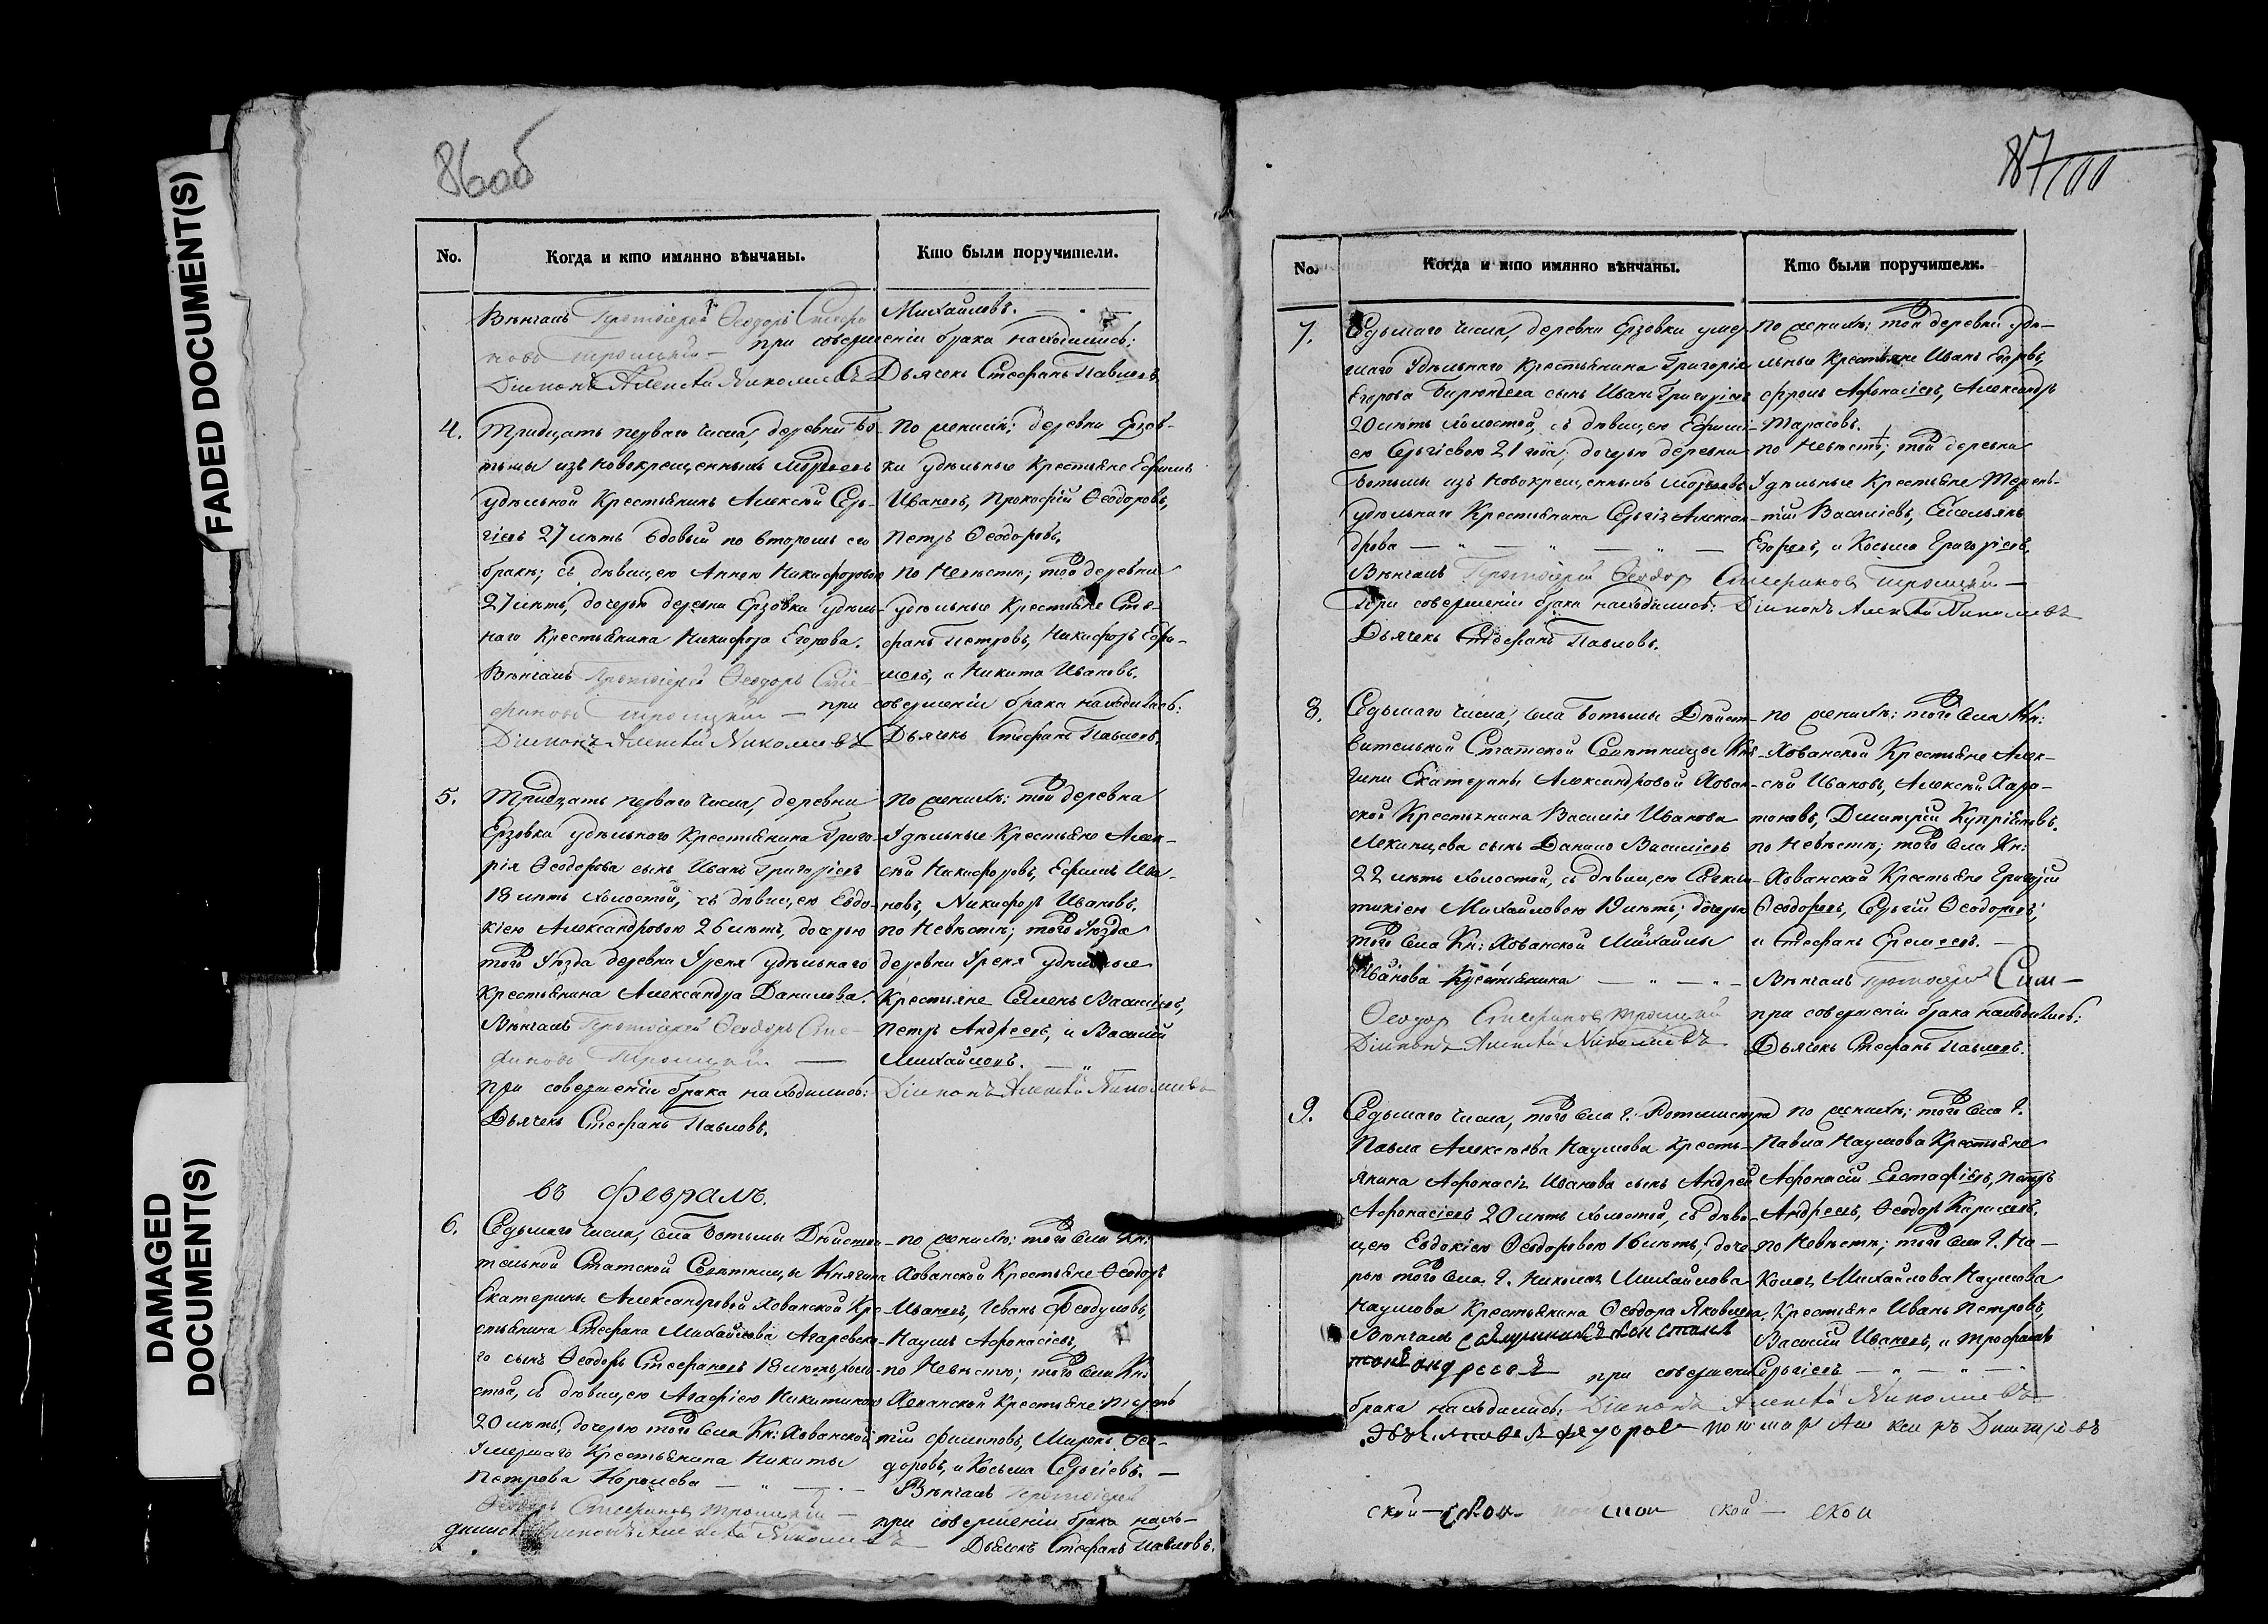 FADED DOCUMENT(S)
DAMAGED
DOCUMENT(S)
86об
No.
Когда и кто имянно вѣнчаны.
Кто были поручители.
Вѣнчалъ Протоіерей Ѳеодоръ Стефа
новъ Троицкій —
Діаконъ Алексѣй Николаевъ
Михайловъ.
при совершеніи брака находились:
Дьячекъ Стефанъ Павловъ.
4.
Тридцать перваго числа, деревни Бо-
тьмы изъ новокрещенныхъ
удѣльной Крестьянинъ Алексѣй Сер-
гіевъ 27 лѣтъ вдовый по второмъ его
бракѣ; съ дѣвицею Анною Никифоровою
27 лѣтъ, дочерью деревни Ерзовки удѣль-
наго Крестьянина Никифора Егорова.
Вѣнчалъ Протоіерей Ѳеодоръ Сте-
фановъ Троицкій —
Діаконъ Алексѣй Николаевъ
По женихѣ: деревни Ерзов-
ки удѣльные Крестьяне Ефимъ
Ивановъ, Прокофій Ѳеодоровъ,
Петръ Ѳеодоровъ.
по Невѣстѣ; той деревни
удѣльные Крестьяне Сте-
фанъ Петровъ, Никифоръ Ефи-
мовъ, и Никита Ивановъ.
при совершеніи брака находились:
Дьячекъ Стефанъ Павловъ.
5.
Тридцать перваго числа, деревни
Ерзовки удѣльнаго Крестьянина Григо-
рія Ѳеодорова сынъ Иванъ Григорьевъ
18 лѣтъ холостой, съ дѣвицею Евдо-
кіею Александровою 26 лѣтъ, дочерью
того Уѣзда деревни Уреня удѣльнаго
Крестьянина Александра Данилова.
Вѣнчалъ Протоіерей Ѳеодоръ Сте-
фановъ Троицкій —
при совершеніи брака находились:
Дьячекъ Стефанъ Павловъ.
по женихѣ: той деревни
Удѣльные Крестьяне Алек-
сѣй Никифоровъ, Ефимъ Ива-
новъ, Никифоръ Ивановъ.
по Невѣстѣ; того Уѣзда
деревни Уреня удѣльные
Крестьяне Семенъ Васильевъ,
Петръ Андреевъ, и Василій
Михайловъ.
Діаконъ Алексѣй Николаевъ
въ Февралѣ.
6.
Седьмаго числа, села Ботьмы Дѣйстви-
тельной Статской Совѣтницы Княгини
Екатерины Александровой Хованской Кре-
стьянина Стефана Михайлова
го сынъ Ѳеодоръ Стефановъ 18 лѣтъ, холо-
стой, съ дѣвицею Агафіею Никитиною
20 лѣтъ, дочерью того села Кн: Хованской
Умершаго Крестьянина Никиты
Петрова
Ѳеодоръ Стефановъ Троицкій —
дились Діаконъ Алексѣй Николаевъ
по женихѣ: того села Кн:
Хованской Крестьяне Ѳеодоръ
Ивановъ, Иванъ Ѳеодуловъ,
Наумъ Афонасіевъ,
по Невѣстѣ; того села Кн:
Хованской Крестьяне
тій Филиповъ, Миронъ Ѳео-
доровъ, и Косьма Сергіевъ. —
Вѣнчалъ Протоіерей
при совершеніи брака нахо-
Дьячекъ Стефанъ Павловъ.
87
No.
Когда и кто имянно вѣнчаны.
Кто были поручители.
7.
Седьмаго числа, деревни Ерзовки умер-
шаго Удѣльнаго Крестьянина Григорія
Егорова сынъ Иванъ Григорьевъ
20 лѣтъ холостой, съ дѣвицею Ефими-
ею Сергіевою 21 года, дочерью деревни
Ботьмы изъ новокрещенныхъ
удѣльнаго Крестьянина Сергія Алексан-
дрова
Вѣнчалъ Протоіерей Ѳеодоръ Стефановъ Троицкій —
При совершеніи брака находились: Діаконъ Алексѣй Николаевъ
Дьячекъ Стефанъ Павловъ.
по женихѣ; той деревни удѣ-
льные Крестьяне Иванъ Егоровъ,
Фролъ Афонасіевъ, Александръ
Тарасовъ.
по Невѣстѣ; той деревни
Удѣльные Крестьяне Терень-
тій Василіевъ, Емельянъ
Егоровъ, и Косьма Григорьевъ.
8.
Седьмаго числа, села Ботьмы Дѣйст-
вительной Статской Совѣтницы Кня-
гини Екатерины Александровой Хован-
ской Крестьянина Василія Иванова
сынъ Данило Василіевъ
22 лѣтъ холостой, съ дѣвицею
Михайловою 19 лѣтъ; дочерью
того села Кн: Хованской Михайлы
Иванова Крестьянина
Ѳеодоръ Стефановъ Троицкій
Діаконъ Алексѣй Николаевъ
по женихѣ: того села Кн:
Хованской Крестьяне Алек-
сѣй Ивановъ, Алексѣй Хари-
тоновъ, Димитрій Купріяновъ.
по Невѣстѣ; того села Кн:
Хованской Крестьяне Григорій
Ѳеодоровъ, Сергій Ѳеодоровъ,
и Стефанъ Еремеевъ. —
Вѣнчалъ Протоіерей
при совершеніи брака находились:
Дьячекъ Стефанъ Павловъ.
9.
Седьмаго числа, того села Г. Ротмистра
Павла Алексѣева Наумова Кресть-
янина Афонасія Иванова сынъ Андрей
Афонасіевъ 20 лѣтъ холостой, съ дѣви-
цею Евдокіею Ѳеодоровою 16 лѣтъ; доче-
рью того села Г. Николая Михайлова
Наумова Крестьянина Ѳеодора Яковлева,
Вѣнчалъ
при совершеніи
брака находились: Діаконъ Алексѣй Николаевъ
по женихѣ; того села Г.
Павла Наумова Крестьяне
Афонасій Евстафіевъ, Петръ
Андреевъ, Ѳеодоръ
по Невѣстѣ; того села Г. Ни-
колая Михайлова Наумова
Крестьяне Иванъ Петровъ,
Василій Ивановъ, и Трофимъ
Сергіевъ